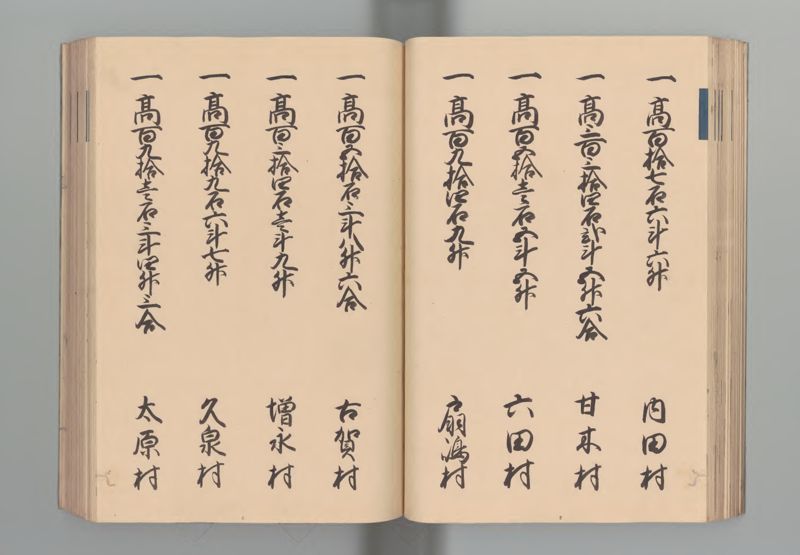 一高百拾七石六斗六升 内田村
一高三百三拾四石弐斗五升六合 甘木村
一高百五拾壱石五斗五升 六田村
一高百九拾四石九升 扇嶋村
一高百五拾石三斗八升六合 古賀村
一高百三拾四石壱斗九升 増永村
一高百九拾九石六斗七升 久泉村
一高百九拾壱石三斗四升三合 太原村